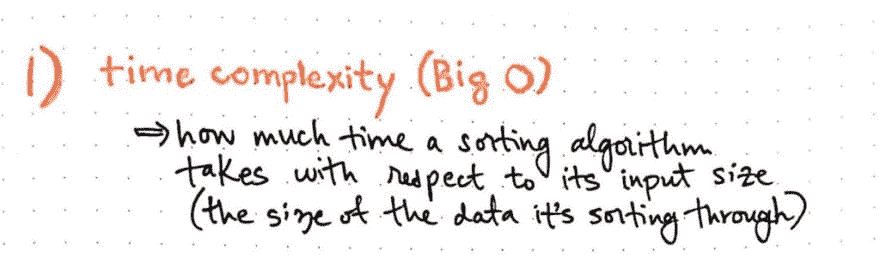 1) time complexity (Big O)
⇒ how much time a sorting algorithm
takes with respect to its input size
(the size of the data it's sorting through)